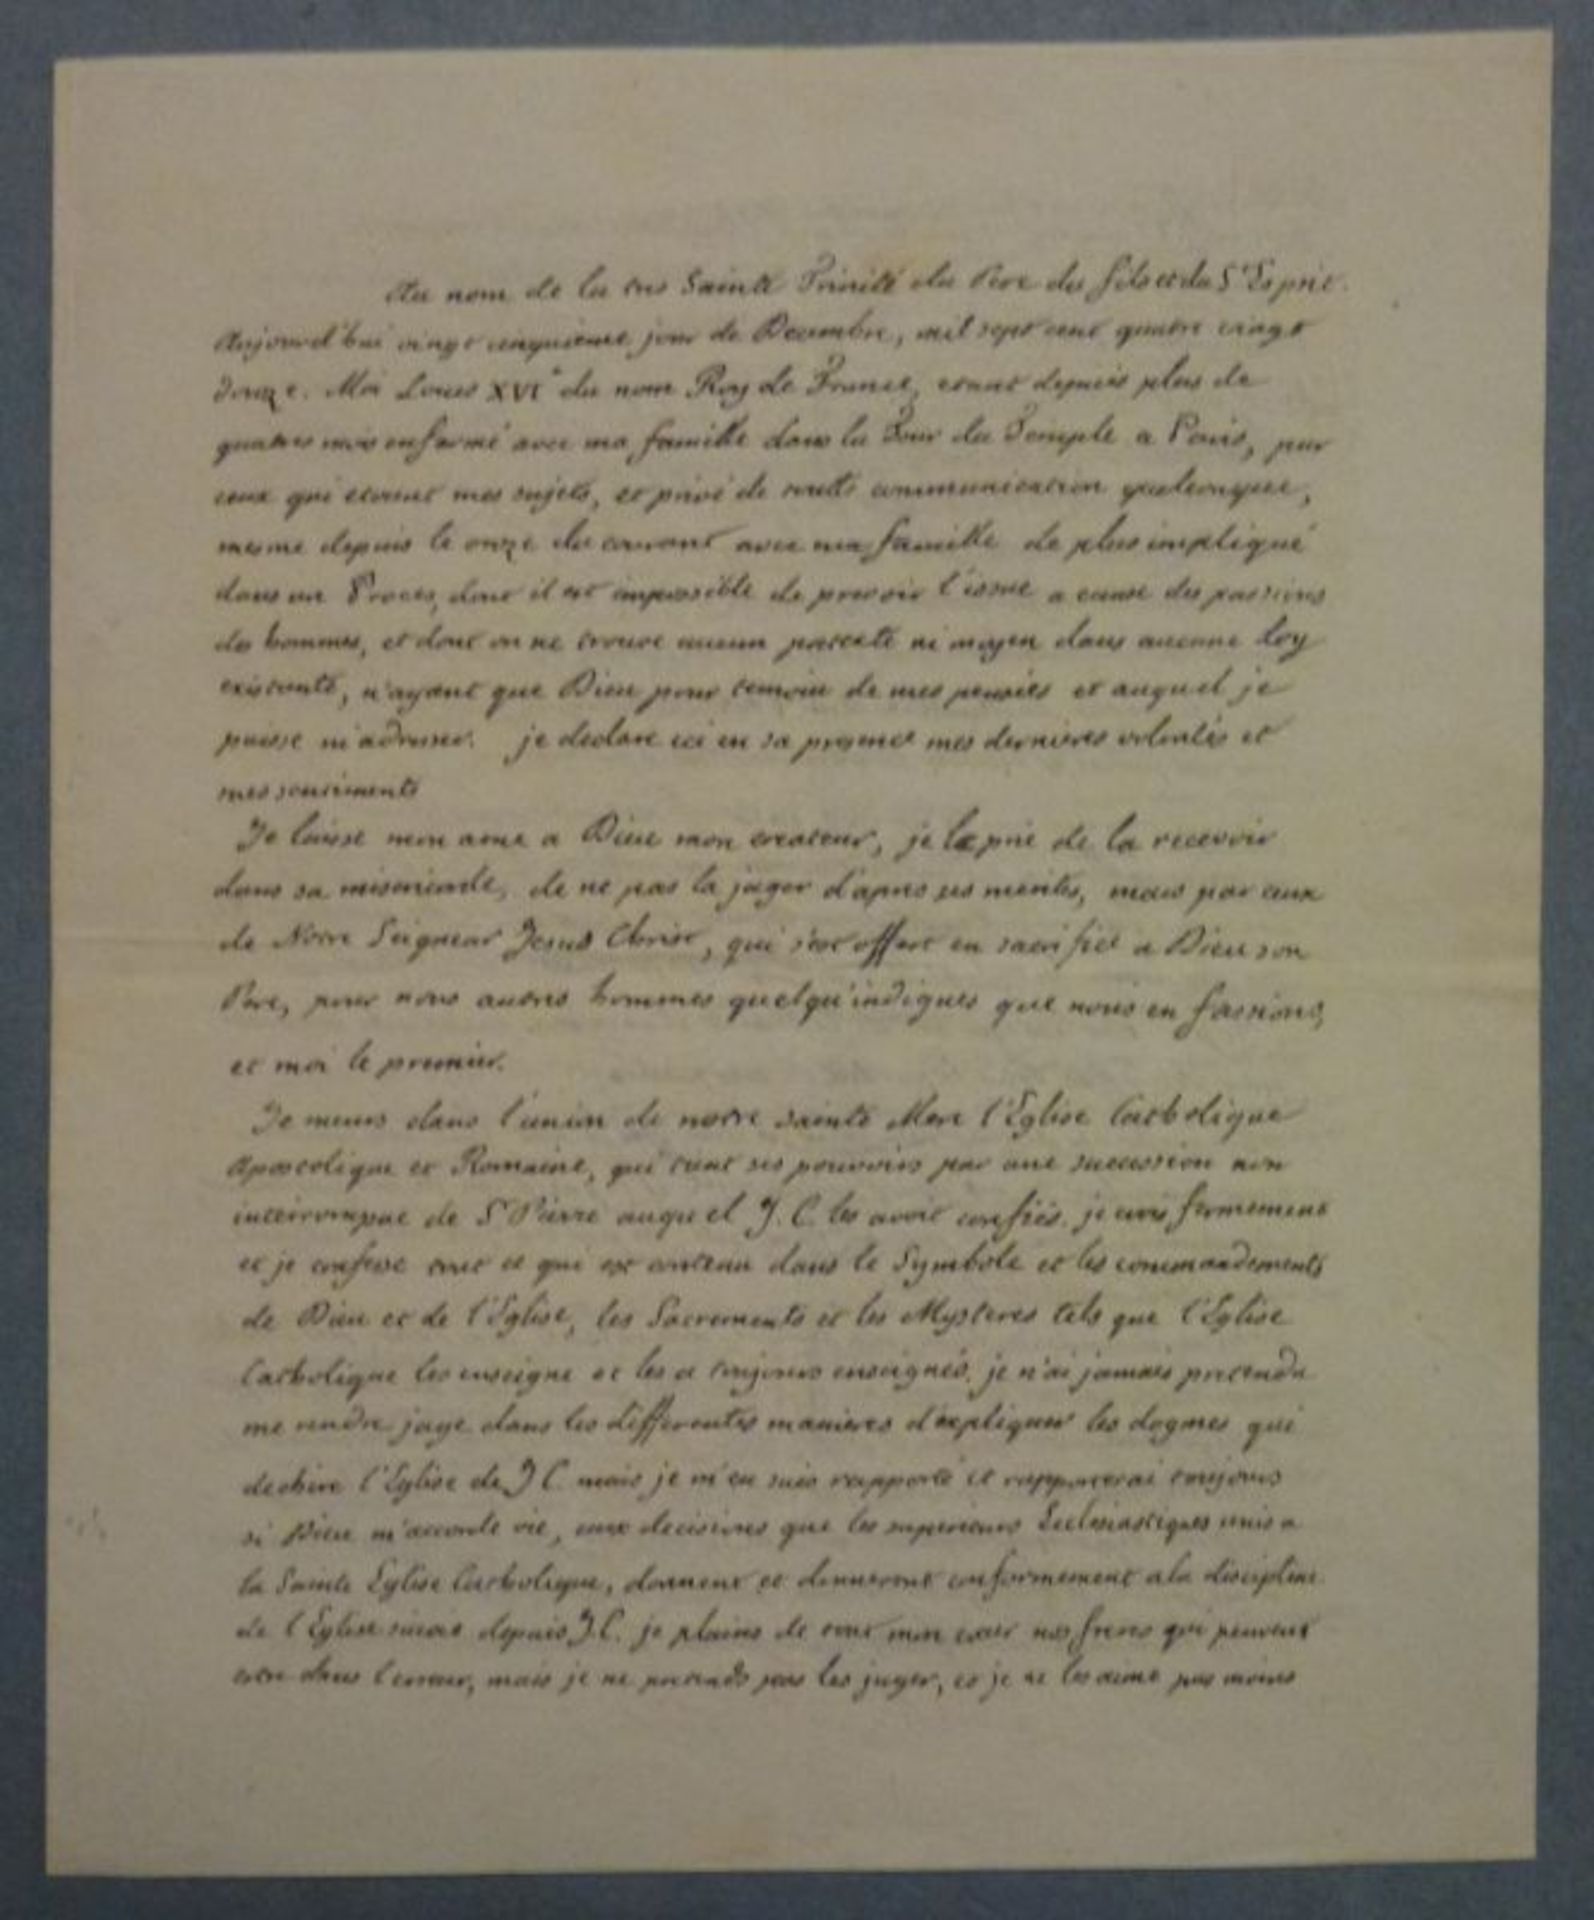 Au nom de la tres Sainte Trinité du Pere du fils et du St Esprit.
Aujourd'hui vingt cinquieme jour de Decembre, mil sept cent quatre vingt
douze. Moi Louis XVIe du nom Roy de France, etant depuis plus de
quatres mois enfermé avec ma famille dans la Tour du Temple a Paris, par
ceux qui etaient mes sujets, et privé de toutte communication quelconque,
mesme depuis le onze du courant avec ma famille de plus impliqué
dans un Proces, dont il est impossible de prevoir l'issue a cause des passions
des hommes, et dont on ne trouve aucun pretexte ni moyen dans aucune Loy
existante, n'ayant que Dieu pour temoin de mes pensées et auquel je
puisse m'adresser. je declare ici en sa presence mes dernieres volontés et
mes sentiments
Je laisse mon ame a Dieu mon createur, je le prie de la recevoir
dans sa misericorde, de ne pas la juger d'apres ses merites, mais par ceux
de Notre Seigneur Jesus Christ, qui s'est offert en sacrifice a Dieu son
Pere, pour nous autres hommes quelqu'indignes que nous en fassions,
et moi le premier.
Je meurs dans l'union de notre sainte Mere l'Eglise Catholique
Apostolique et Romaine, qui tient ses pouvoirs par une succession non
interrompue de St Pierre auquel J. C. les avoit confiés. je crois fermement
et je confesse tout ce qui est contenu dans le Symbole et les commandements
de Dieu et de l'Eglise, les Sacrements et les Mysteres tels que l'Eglise
Catholique les enseigne et les a toujours enseignés. je n'ai jamais pretendu
me rendre juge dans les differentes manieres d'expliquer les dogmes qui
dechire l'Eglise de J. C. mais je m'en suis rapporté et rapporterai toujours
si Dieu m'accorde vie, aux decisions que les superieurs Ecclesiastiques unis a
la Sainte Eglise Catholique, donnent et donneront conformement a la discipline
de l'Eglise suivie depuis J. C. je plains de tout mon cœur nos freres qui peuvent
etre dans l'erreur, mais je ne pretends pas les juger, et je ne les aime pas moins